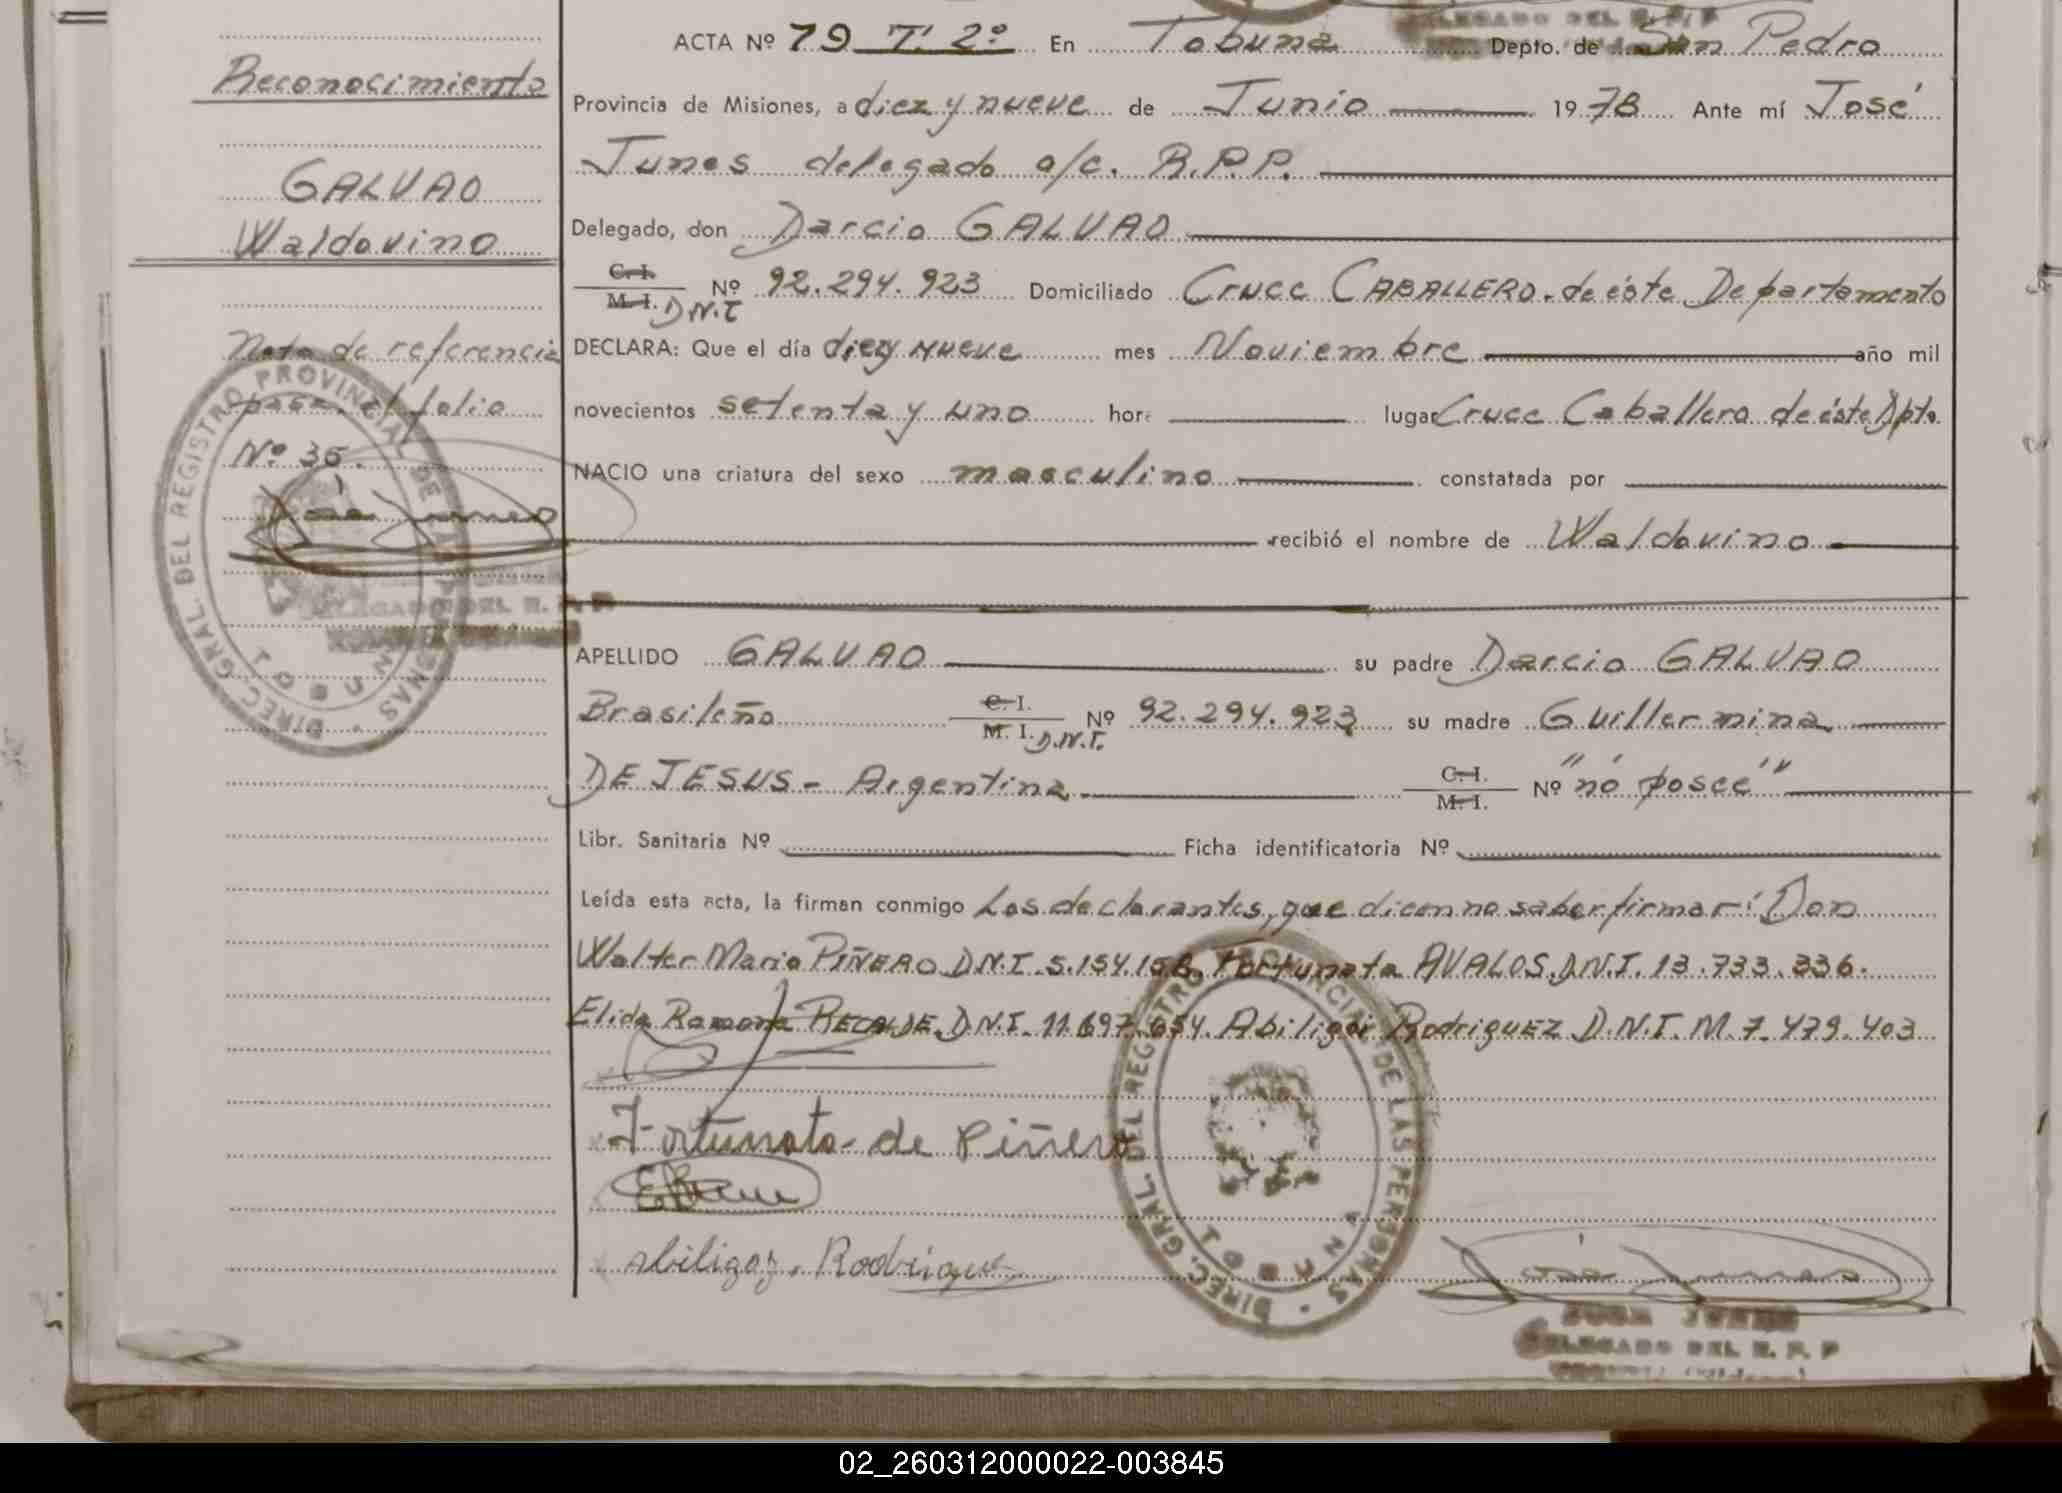 ACTA Nº 79 T. 2º En Tobuna Depto. de San Pedro
Provincia de Misiones, a diez y nueve de Junio 1978 Ante mí José
Junes delegado a/c. R.P.P.
Delegado, don Darcio GALVAO
C. I. M. I. D.N.I Nº 92.294.923 Domiciliado Cruce CABALLERO. de éste Departamento
DECLARA: Que el día diez y nueve mes Noviembre año mil
novecientos setenta y uno hora lugar Cruce Caballero de éste Dpto.
NACIO una criatura del sexo masculino constatada por
recibió el nombre de Waldovino
APELLIDO GALVAO su padre Darcio GALVAO
Brasileño C. I. M. I. D.N.I. Nº 92.294.923 su madre Guillermina
DE JESUS - Argentina C. I. M. I. Nº "no poseé"
Libr. Sanitaria Nº Ficha identificatoria Nº
Leída esta acta, la firman conmigo Los declarantes, que dicen no saber firmar: Don
Walter Mario PIÑERO D.N.I 5.154.158. Fortunata AVALOS. D.N.I. 13.733.336.
Elida Ramona RECALDE. D.N.I. 11.697.654. Abiligoi Rodriguez D.N.I. M. 7.479.403
Fortunata de Piñero
Rodrigue
José Junes
JOSE JUNES
DELEGADO DEL R. P. P
Reconocimiento
GALVAO
Waldovino
Nota de referencia
pasa al folio
Nº 35.
José Junes
DELEGADO DEL R. P. P
DIREC. GRAL. DEL REGISTRO PROVINCIAL DE LAS PERSONAS - TOBUNA
DIREC. GRAL. DEL REGISTRO PROVINCIAL DE LAS PERSONAS - TOBUNA
DELEGADO DEL R. P. P
02_260312000022-003845